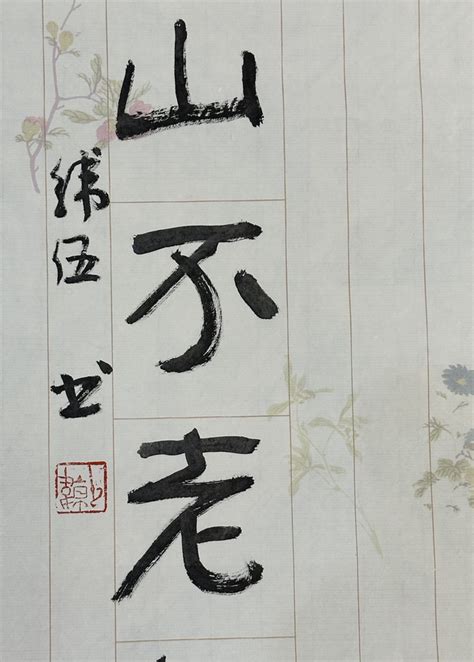 山不老
纬伍 书